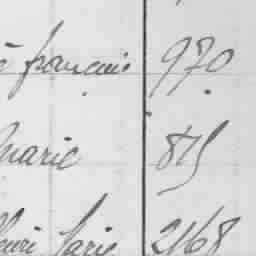 françois 970
Marie 815
Henri Marie 2168